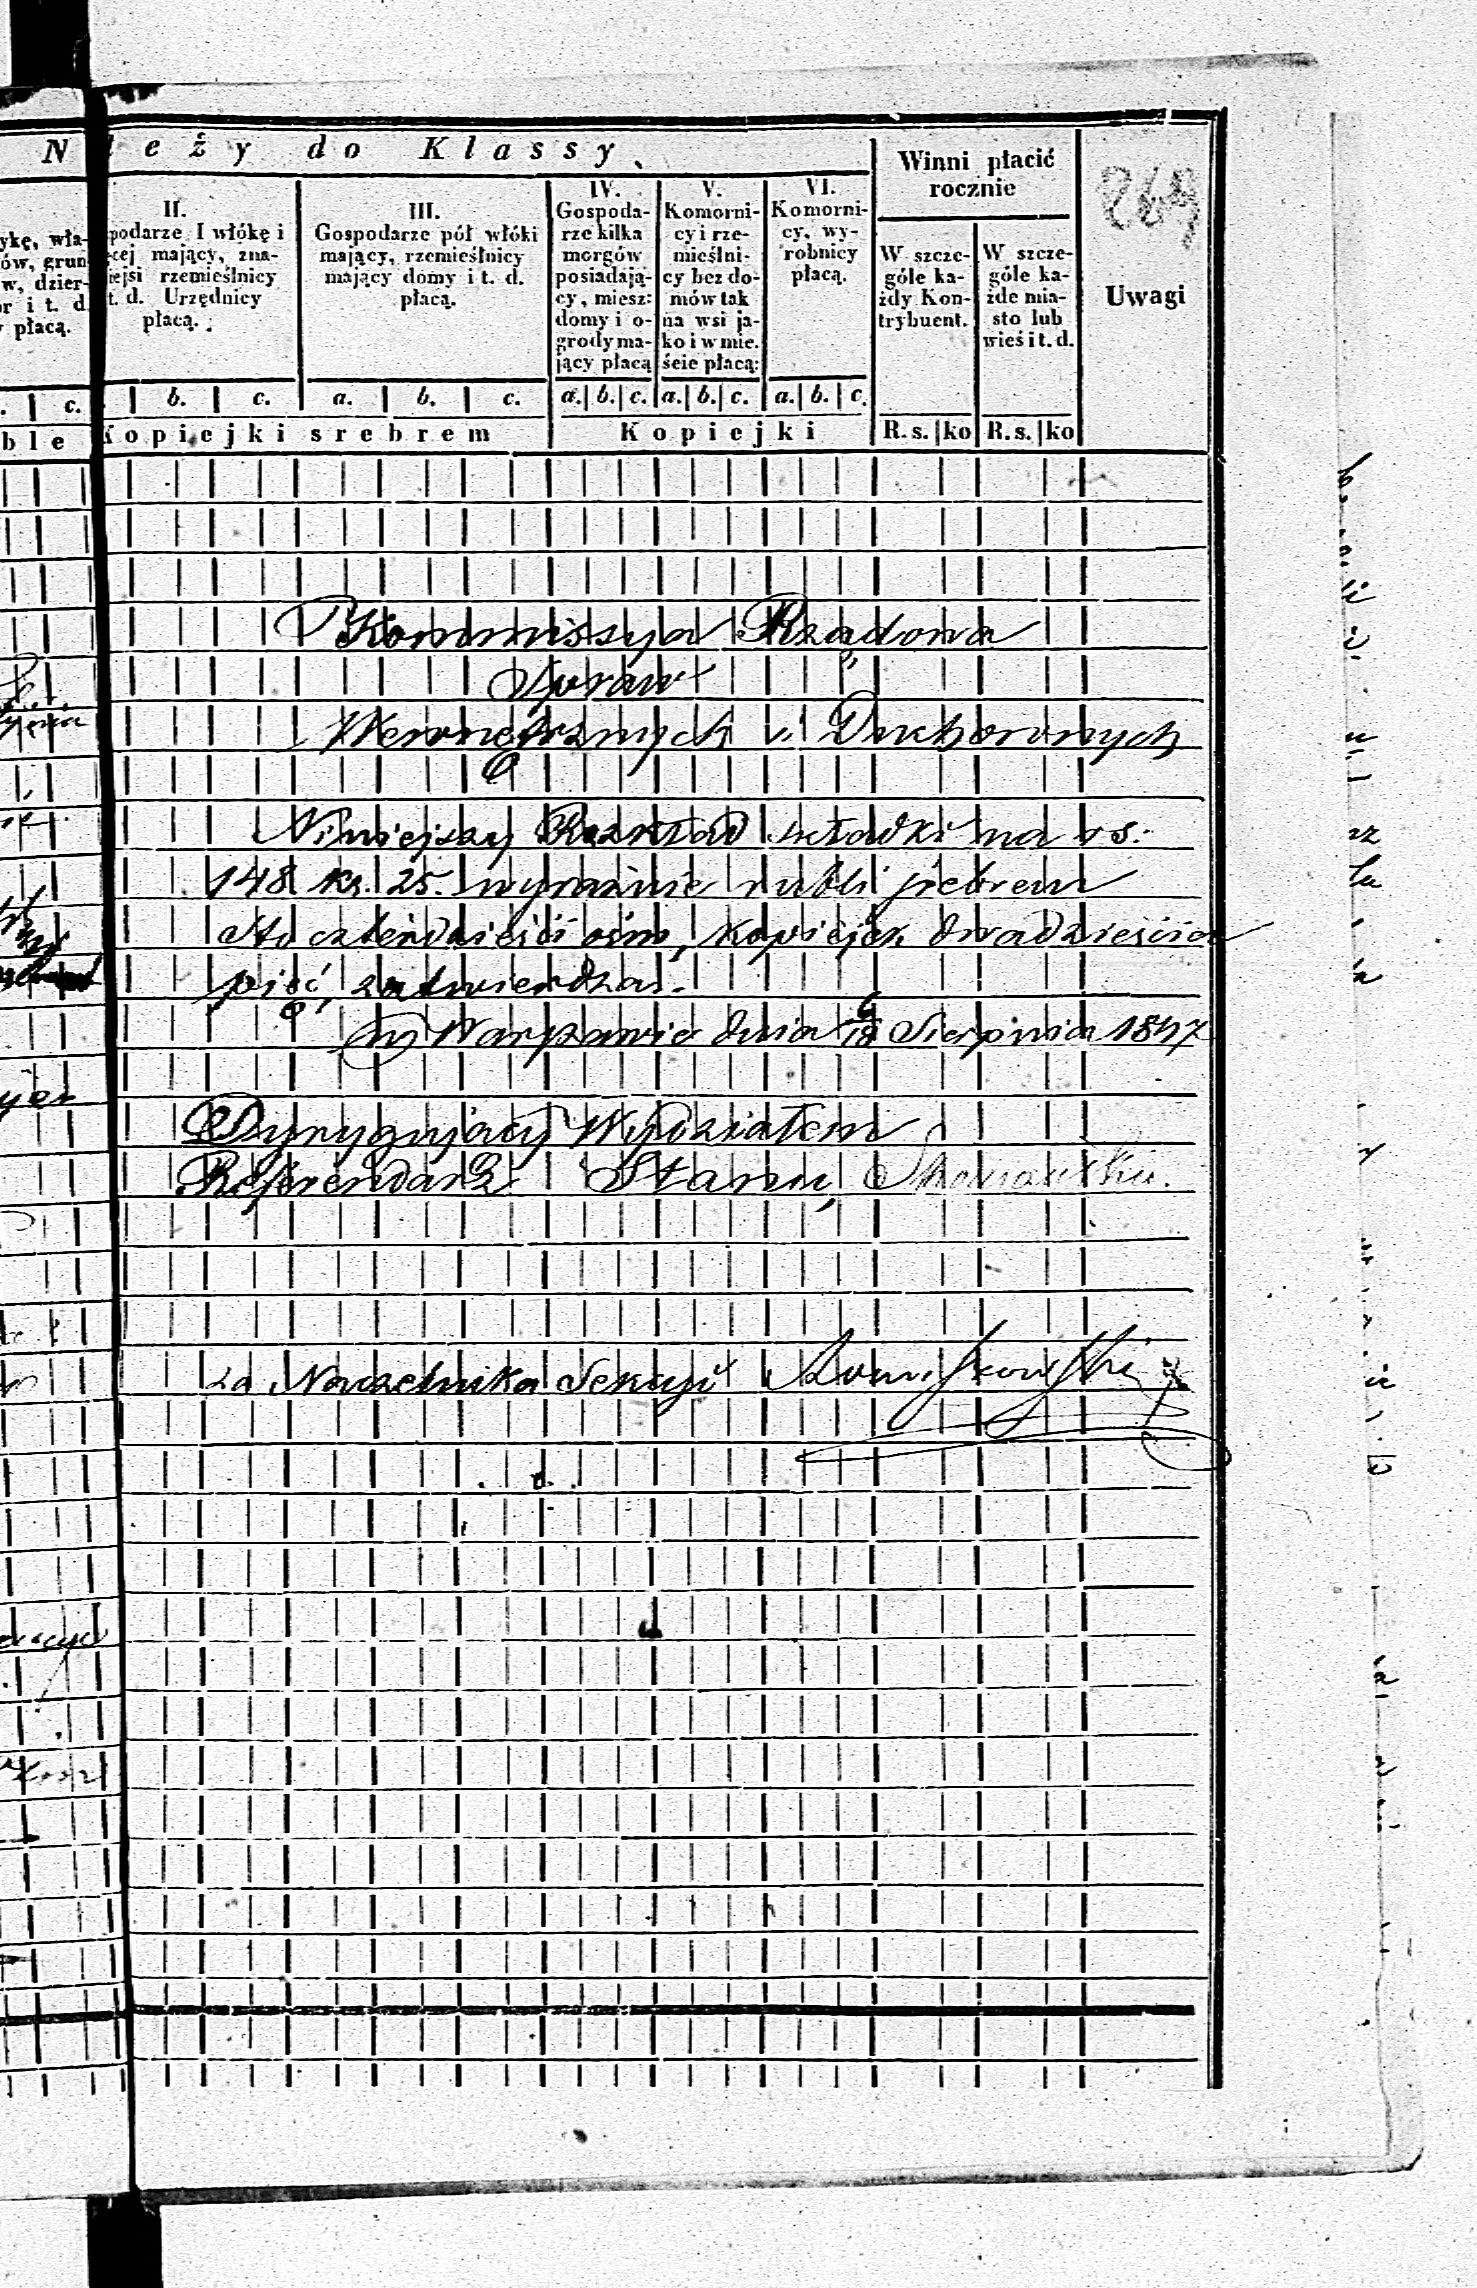 N leży do Klassy.
II.
podarze I włókę i
cej mający, zna-
ejsi rzemieślnicy
t. d. Urzędnicy
płacą.
III.
Gospodarze pół włóki
mający, rzemieślnicy
mający domy i t. d.
płacą.
IV.
Gospoda-
rze kilka
morgów
posiadają-
cy, miesz:
domy i o-
grody ma-
jący płacą
V.
Komorni-
cy i rze-
mieślni-
cy bez do-
mów tak
na wsi ja-
ko i w mie.
ście płacą:
VI.
Komorni-
cy, wy-
robnicy
płacą.
Winni płacić
rocznie
W szcze-
góle ka-
żdy Kon-
trybuent.
W szcze-
góle ka-
żde mia-
sto lub
wieś i t. d.
Uwagi
ykę, wła-
ów, grun
w, dzier-
or i t. d.
płacą.
c. b. c. a. b. c. a. b. c. a. b. c. a. b. c.
ble Kopiejki srebrem Kopiejki R.s. ko R.s. ko
Kommissya Rządowa
Spraw
Wewnętrznych i Duchownych
Niniejszy Rozkład składki na rs:
148 k. 25. wyraźnie rubli srebrem
sto czterdzieści ośm, kopiejek dwadzieścia
pięć, zatwierdza.
w Warszawie dnia 6/18 Sierpnia 1847
Dyrygujący Wydziałem
Referendarz Stanu
za Naczelnika Sekcyi